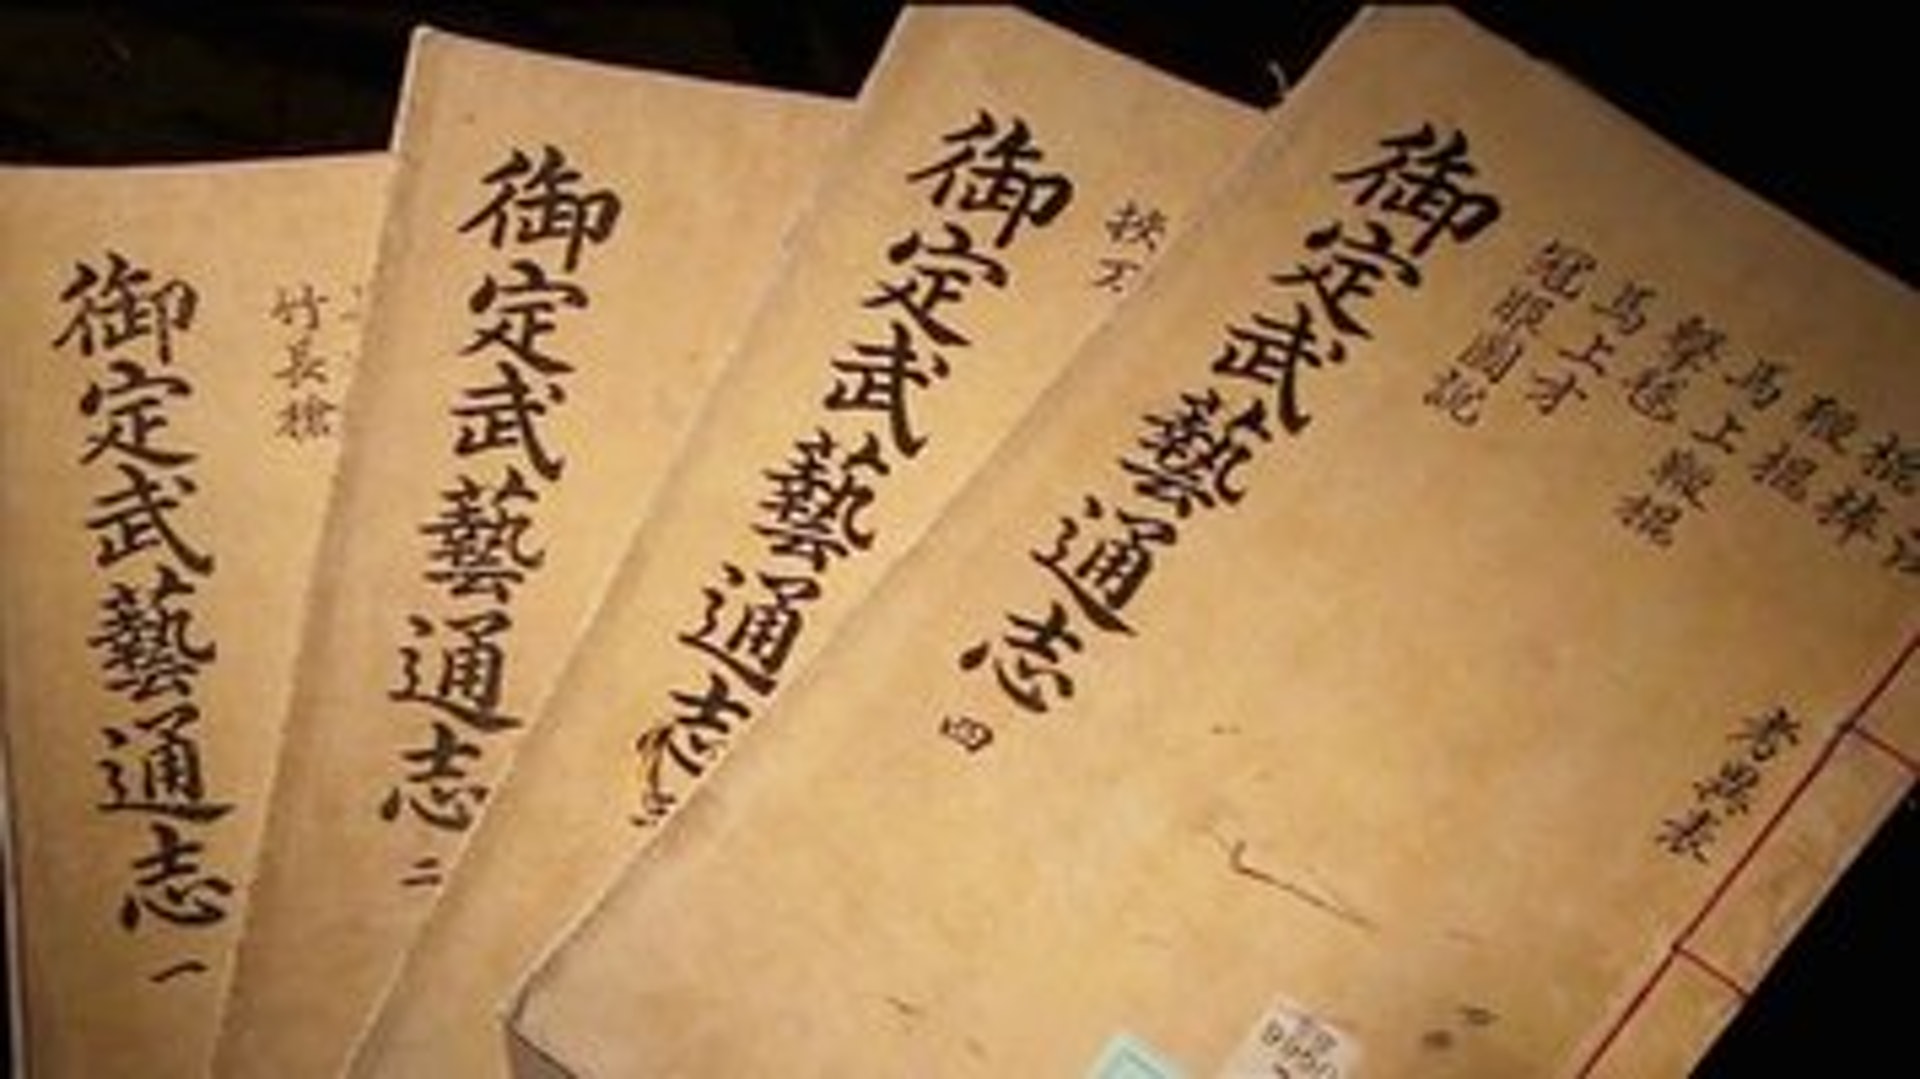 御定武藝通志一
竹長槍
御定武藝通志二
御定武藝通志
挾刀
御定武藝通志四
棍棒
鞭棍
馬上鞭棍
擊毬
馬上才
冠服圖說
考異表
9950